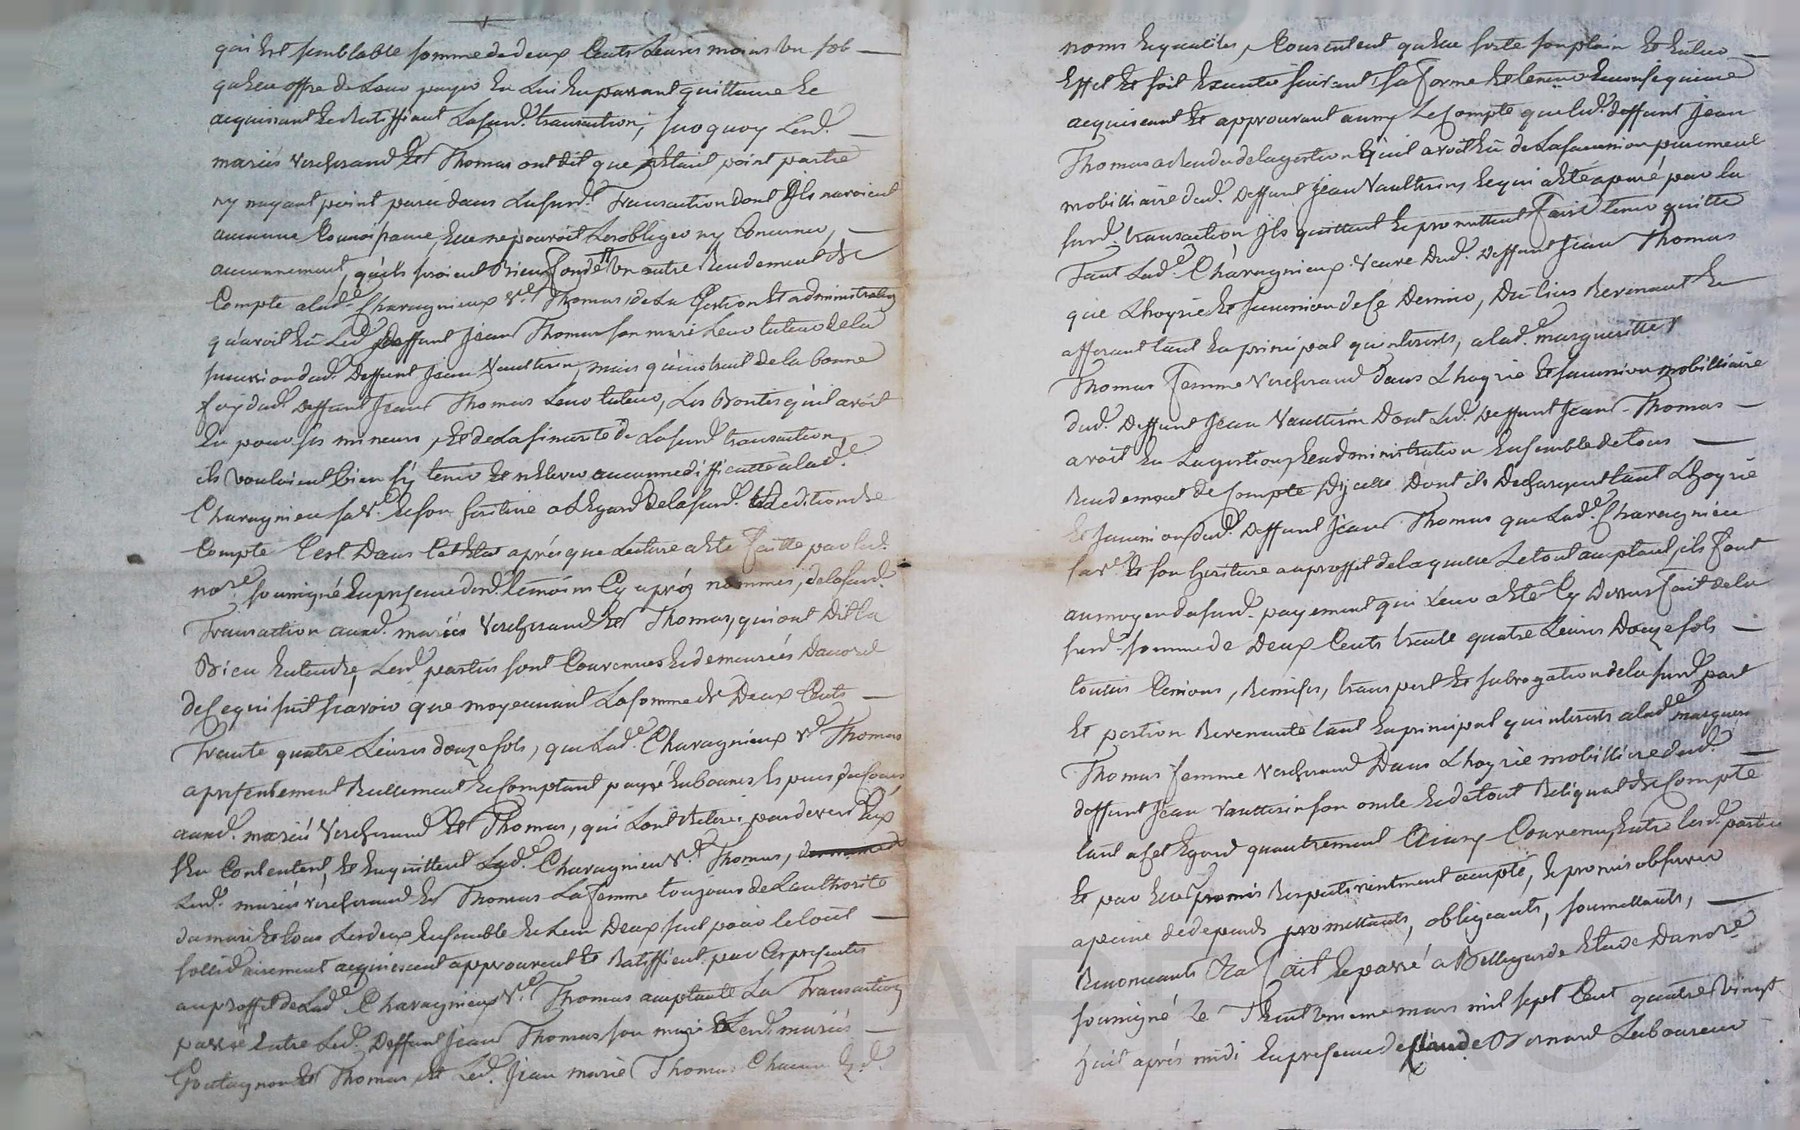 qui est semblable somme de deux Cents Livres moins un sol
qu'elle offre de Leur payer En Lui En passant quittance Et
acquiessant Et Ratiffiant Lasusd.e transaction, sur quoy Lesd.
mariés Vercherand Et Thomas ont dit que n'Etant point partie
ny nayant point parû dans Lasusd.e Transaction dont Ils navoient
aucunne Connoissance, Elle ne pouvoit Les obliger ny Concerner,
aucunnement, qu'ils seroient Bien fondé En autre Rendement de
Compte a lad.e Charagnieux V.e Thomas, de La Gestion Et administration
qu'avoit Eû Led. Deffunt Jean Thomas son mari Leur tuteur de la
succession dud. Deffunt Jean Vaultrin, mais qu'instruit de la bonne
foy dud. Deffunt Jean Thomas Leur tuteur, Les Bontés qu'il avoit
Eu pour ses mineurs, Et de La sincerité de Lasusd.e transaction,
ils vouloient bien s'y tenir Et n'Elever aucunne difficulté a lad.e
Charagnieu sa V.e Et son hoirie a L'Egard de lasusd.e Redition de
Compte C'est Dans Cet Etat après que Lecture a Eté faitte par led.
no.re soussigné En presence desd. temoins Cy après nommés, de lasusd.
Transaction auxd. mariés Vercherand Et Thomas, qui ont Dit La
Bien Entendre, Lesd. parties sont Convenues Et demeurées D'accord
de Ce qui suit scavoir que moyennant La somme de Deux Cents
Trante quatre Livres douze sols, que Lad.e Charagnieux V.e Thomas
a presentement Reellement Et Comptant payé En bonnes Especes du Cours
auxd. mariés Vercherand Et Thomas, qui L'ont Retirée pardevers Eux
s'En Contentent, Et En quittent Lad.e Charagnieu V.e Thomas,
Lesd. mariés Vercherand Et Thomas La femme toujours de L'authorité
du mari Et tous Les deux Ensemble Et L'un D'eux seul pour le tout
sollidairement acquiescent approuvent Et Ratiffient par Ces presentes
au proffit de Lad.e Charagnieux V.e Thomas acceptante La Transaction
passée Entre Led. Deffunt Jean Thomas son mari Et Lesd. mariés
Goutagnon Et Thomas, Et Led. Jean marie Thomas Chacun Esd.
noms Et qualités, Consentent qu'Elle sorte son plein Et Entier
Effet Et soit Executée suivant sa forme Et teneur En Consequence
acquiescant Et approuvant aussy Le Compte que led. deffunt Jean
Thomas a Rendu de la gestion qu'il avoit Eû de La succession purement
mobilliaire dud. Deffunt Jean Vaultrin, Et qui a Eté apuré par la
susd.e transaction Ils quittent Et promettent faire tenir quitte
Tant Lad.e Charagnieux Veuve Dud. Deffunt Jean Thomas
que L'hoyrie Et succession de Ce Dernier, Du Lieu Revenant Et
afferant tant En principal qu'interets, a lad.e margueritte
Thomas femme Vercherand Dans L'hoyrie Et succession mobilliaire
dud. Deffunt Jean Vaultrin Dont Led. Deffunt Jean Thomas
avoit Eu La gestion, Et administration Ensemble de tous
Rendement de Compte D'jcelle Dont ils Dechargent tant L'hoyrie
Et succession dud. Deffunt Jean Thomas que Lad.e Charagnieu
sa V.e Et son hoirie au proffit de laquelle Le tout acceptant, ils font
au moyen dususd. payement qui Leur a Eté Cy Dessus fait de la
susd.e somme de Deux Cents trente quatre Livres Douze sols
toutes Cessions, Remises, transport Et subrogation de la susd.e part
Et portion Revenante tant En principal qu'interets a lad.e margueritte
Thomas femme Vercherand Dans L'hoyrie mobilliere dud.
deffunt Jean Vaultrin son oncle Et de tout Reliquat de Compte
tant a Cet Egard qu'autrement Ainsy Convenu Entre Lesd. parties
Et par Elles promis Respectivement accepté, Et promis observer
a peine de depends, promettants, obligeants, soumettants,
Renonceants Et.a fait Et passé a Bellegarde Etude Dunore
soussigné Le Trent'unieme mars mil sept Cent quatre Vingt
huit après midi En presence de Claude Bernard Laboureur